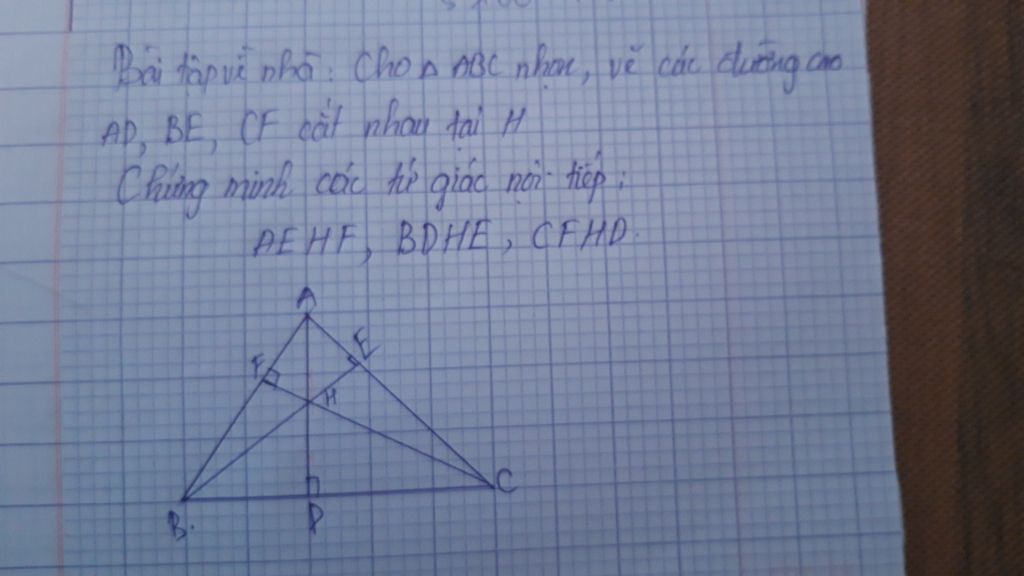 Bài tập về nhà: Cho Δ ABC nhọn, vẽ các đường cao
AD, BE, CF cắt nhau tại H
Chứng minh các tứ giác nội tiếp:
AEHF, BDHE, CFHD.
A
F
E
H
B.
D
C